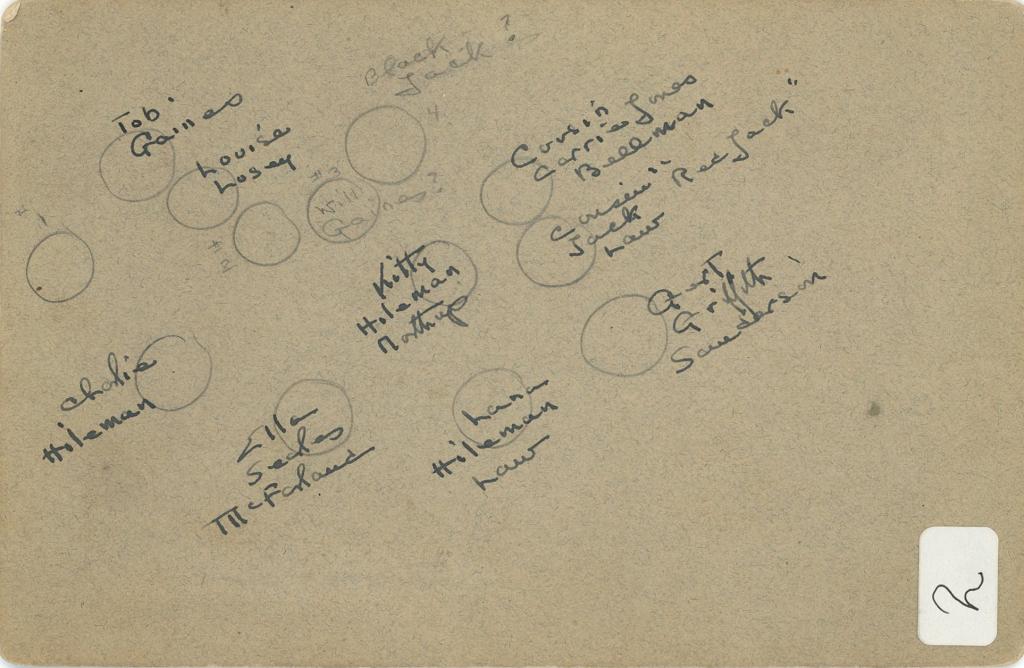 Black
Jack?
4.
Tob.
Gaines
Louise
Losey
Cousin
Carrie Jones
Bellman
Cousin "Red Jack"
Jack
Law
#3
Will
Gaines?
#1
#2
Kitty
Hileman
Northup
Gert
Griffith
Sanderson
Charlie
Hileman
Ella
Seales
McFarland
Lana
Hileman
Law
2